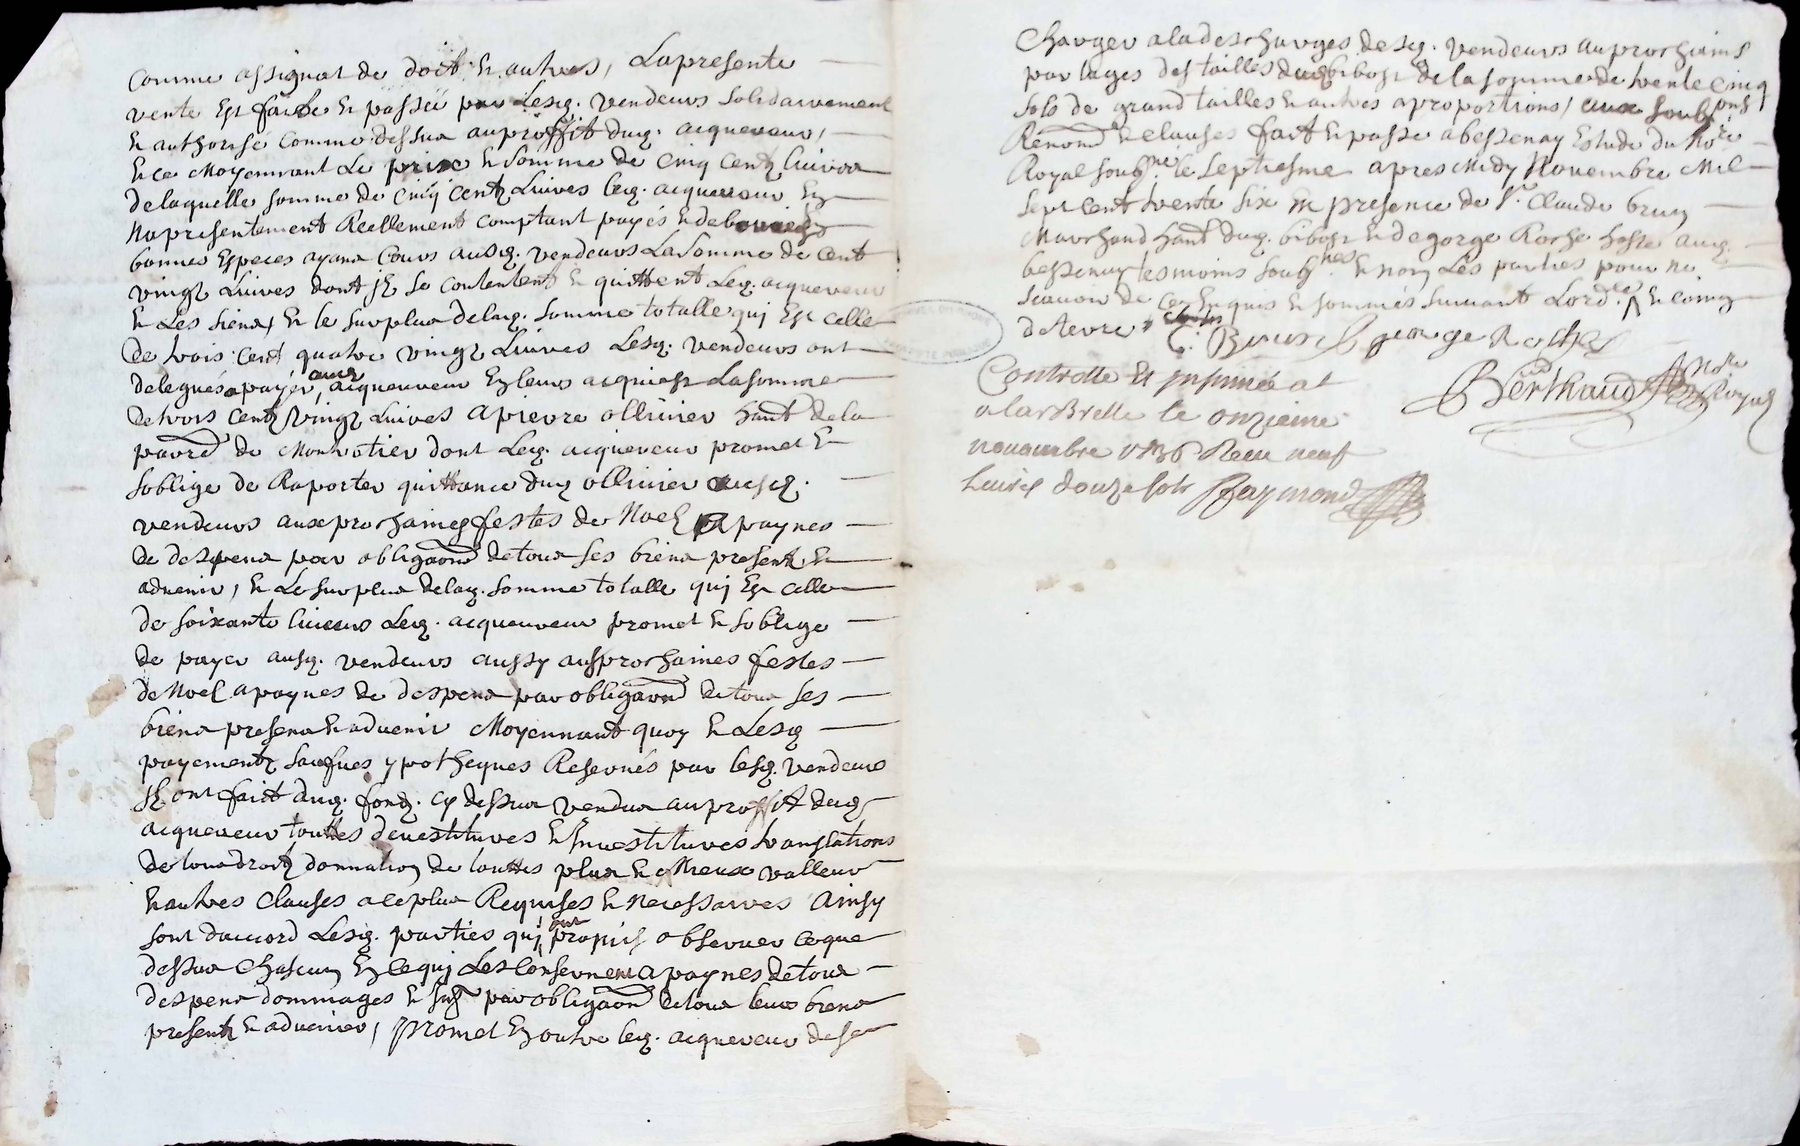 Comme assignat de doit & autres, La presente
vente Est faitte & passée par Lesq. vendeurs solidairement
& authorisé comme dessus au proffit dug. acquereur,
& ce Moyennant Le prix & somme de cinq centz livres
de laquelle somme de cinq centz Livres leq. acquereur En
Na presentement Reellement comptant payés & de
bonnes Especes ayans Cours ausq. vendeurs La somme de cent
vingt Livres dont Ils se contentent & quittent Leq. acquereur
& Les siens, & le surplus de laq. somme totalle qui Est celle
de trois cent quatre vingt Livres Lesq. vendeurs ont
delegués a payer, acquereur En leurs acquist La somme
de trois centz vingt Livres a pierre ollinier hant. de la
parr. de Montrotier dont Leq. acquereur promet &
soblige de Raporter quittance dug ollinier ausq.
vendeurs aux prochaines festes de Noel a paynes
de despens par obligaon de tous ses biens presentz &
advenir, & Le surplus de laq. somme totalle qui Est celle
de soixante livres Leq. acquereur promet & soblige
de payer ausq. vendeurs aussy aux prochaines festes
de Noel a paynes de despens par obligaon de tous ses
biens presens & advenir Moyennant quoy & Lesq
payementz saufues ypotheques Reservés par lesq. vendeurs
Ils ont fait duq. fondz. cy dessus vendus au proffit dug
acquereur touttes devestitures & Investitures translations
de tous droitz donnation de touttes plus & Mieux valleur
& autres Clauses a ce plus Requises & necessaires Ainsy
sont d'accord Lesq. parties qui ont promis observer ce que
dessus chascun En ce qui Les Conserne a paynes de tous
despens dommages & Intz par obligaon de tous leurs biens
presentz & advenir, promet En outre leq. acquereur de se
Charger a la descharges desq. vendeurs au prochains
partages des tailles dud bibost de la somme de trente cinq
sols de grand tailles & autres a proportions, aux soubmons
Renonon & clauses fait & passe a bessenay Estude du No.re
Royal soubne le septiesme apres Midy Novembre Mil
sept cent trente six En presence de Sr. Claude brun
Marchand hant. dug. bibost & de george Roche hoste aug.
bessenay tesmoins soubnes & non Les parties pour ne
scavoir de ce Enquis & sommés suivant Lord.ce & coing
d Aevre
C. Brun george Roche
Berthaud No.re Royal
Controllé Et insinué at
a larbrelle le onzieme
nouembre 1736 Receu neuf
Liures douze sols Raymond